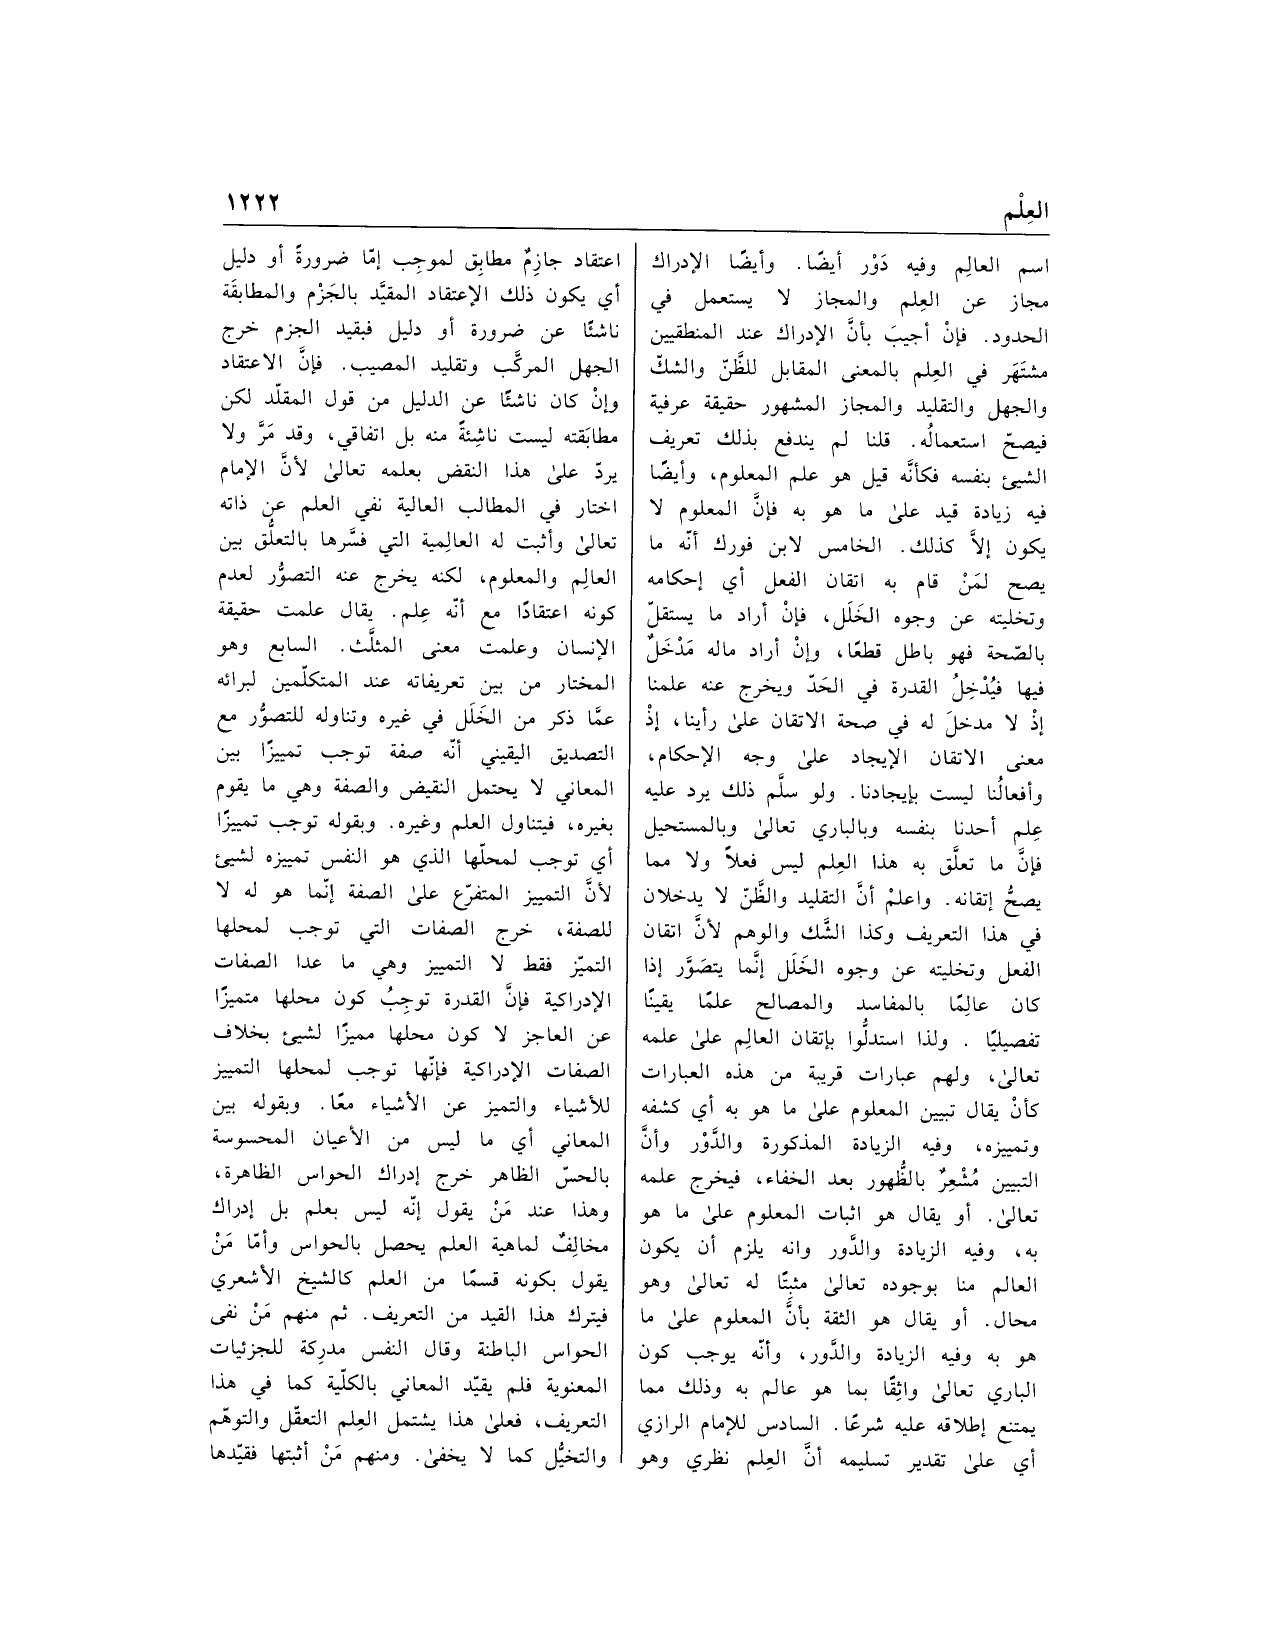 العِلْم
١٢٢٢
اسم العالِم وفيه دَوْر أيضًا. وأيضًا الإدراك
مجاز عن العِلم والمجاز لا يستعمل في
الحدود. فإنْ أجيبَ بأنَّ الإدراك عند المنطقيين
مشتَهَر في العِلم بالمعنى المقابل للظَّنّ والشكّ
والجهل والتقليد والمجاز المشهور حقيقة عرفية
فيصحّ استعمالُه. قلنا لم يندفع بذلك تعريف
الشيئ بنفسه فكأنَّه قيل هو علم المعلوم، وأيضًا
فيه زيادة قيد علىٰ ما هو به فإنَّ المعلوم لا
يكون إلاَّ كذلك. الخامس لابن فورك أنّه ما
يصح لمَنْ قام به اتقان الفعل أي إحكامه
وتخليته عن وجوه الخَلَل، فإنْ أراد ما يستقلّ
بالصّحة فهو باطل قطعًا، وإنْ أراد ماله مَدْخَلٌ
فيها فيُدْخِلُ القدرة في الحَدّ ويخرج عنه علمنا
إذْ لا مدخلَ له في صحة الاتقان علىٰ رأينا، إذْ
معنى الاتقان الإيجاد علىٰ وجه الإحكام،
وأفعالُنا ليست بإيجادنا. ولو سلَّم ذلك يرد عليه
عِلم أحدنا بنفسه وبالباري تعالىٰ وبالمستحيل
فإنَّ ما تعلَّق به هذا العِلم ليس فعلاً ولا مما
يصحُّ إتقانه. واعلمْ أنَّ التقليد والظَّنّ لا يدخلان
في هذا التعريف وكذا الشَّك والوهم لأنَّ اتقان
الفعل وتخليته عن وجوه الخَلَل إنَّما يتصَوَّر إذا
كان عالِمًا بالمفاسد والمصالح علمًا يقينًا
تفصيليًا . ولذا استدلُّوا بإتقان العالِم علىٰ علمه
تعالىٰ، ولهم عبارات قريبة من هذه العبارات
كأنْ يقال تبيين المعلوم علىٰ ما هو به أي كشفه
وتمييزه، وفيه الزيادة المذكورة والدَّوْر وأنَّ
التبيين مُشْعِرٌ بالظُّهور بعد الخفاء، فيخرج علمه
تعالىٰ. أو يقال هو اثبات المعلوم علىٰ ما هو
به، وفيه الزيادة والدَّور وانه يلزم أن يكون
العالم منا بوجوده تعالىٰ مثبِتًا له تعالىٰ وهو
محال. أو يقال هو الثقة بأنَّ المعلوم علىٰ ما
هو به وفيه الزيادة والدَّور، وأنّه يوجب كون
الباري تعالىٰ واثِقًا بما هو عالم به وذلك مما
يمتنع إطلاقه عليه شرعًا. السادس للإمام الرازي
أي علىٰ تقدير تسليمه أنَّ العِلم نظري وهو
اعتقاد جازِمٌ مطابِق لموجِب إمّا ضرورةً أو دليل
أي يكون ذلك الإعتقاد المقيَّد بالجَزْم والمطابقَة
ناشئًا عن ضرورة أو دليل فبقيد الجزم خرج
الجهل المركَّب وتقليد المصيب. فإنَّ الاعتقاد
وإنْ كان ناشئًا عن الدليل من قول المقلّد لكن
مطابَقته ليست ناشِئةً منه بل اتفاقي، وقد مَرَّ ولا
يردّ علىٰ هذا النقض بعلمه تعالىٰ لأنَّ الإمام
اختار في المطالب العالية نفي العلم عن ذاته
تعالىٰ وأثبت له العالِمية التي فسَّرها بالتعلُّق بين
العالِم والمعلوم، لكنه يخرج عنه التصوُّر لعدم
كونه اعتقادًا مع أنّه عِلم. يقال علمت حقيقة
الإنسان وعلمت معنى المثلَّث. السابع وهو
المختار من بين تعريفاته عند المتكلّمين لبرائه
عمَّا ذكر من الخَلَل في غيره وتناوله للتصوُّر مع
التصديق اليقيني أنّه صفة توجب تمييزًا بين
المعاني لا يحتمل النقيض والصفة وهي ما يقوم
بغيره، فيتناول العلم وغيره. وبقوله توجب تمييزًا
أي توجب لمحلّها الذي هو النفس تمييزه لشيئ
لأنَّ التمييز المتفرّع علىٰ الصفة إنّما هو له لا
للصفة، خرج الصفات التي توجب لمحلها
التميّز فقط لا التمييز وهي ما عدا الصفات
الإدراكية فإنَّ القدرة توجِبُ كون محلها متميزًا
عن العاجز لا كون محلها مميزًا لشيئ بخلاف
الصفات الإدراكية فإنّها توجب لمحلها التمييز
للأشياء والتميز عن الأشياء معًا. وبقوله بين
المعاني أي ما ليس من الأعيان المحسوسة
بالحسّ الظاهر خرج إدراك الحواس الظاهرة،
وهذا عند مَنْ يقول إنّه ليس بعلم بل إدراك
مخالِفٌ لماهية العلم يحصل بالحواس وأمّا مَنْ
يقول بكونه قسمًا من العلم كالشيخ الأشعري
فيترك هذا القيد من التعريف. ثم منهم مَنْ نفى
الحواس الباطنة وقال النفس مدرِكة للجزئيات
المعنوية فلم يقيّد المعاني بالكلّية كما في هذا
التعريف، فعلىٰ هذا يشتمل العِلم التعقّل والتوهّم
والتخيُّل كما لا يخفىٰ. ومنهم مَنْ أثبتها فقيّدها